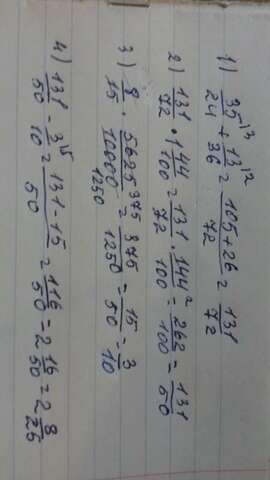 1) 35/24 \3 + 13/36 \2 = (105+26)/72 = 131/72
2) 131/72 · 1 44/100 = 131/72 · 144/100 2 = 262/100 = 131/50
3) 8/15 · 5625/10000 375/1250 = 375/1250 = 15/50 = 3/10
4) 131/50 - 3/10 \5 = (131-15)/50 = 116/50 = 2 16/50 = 2 8/25